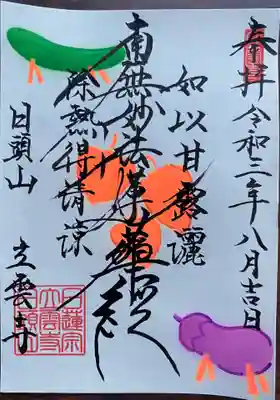 奉拝 令和三年八月吉日
如以甘露灑
南無妙法蓮華経
除熱得清涼
日頭山
立雲寺
日蓮宗